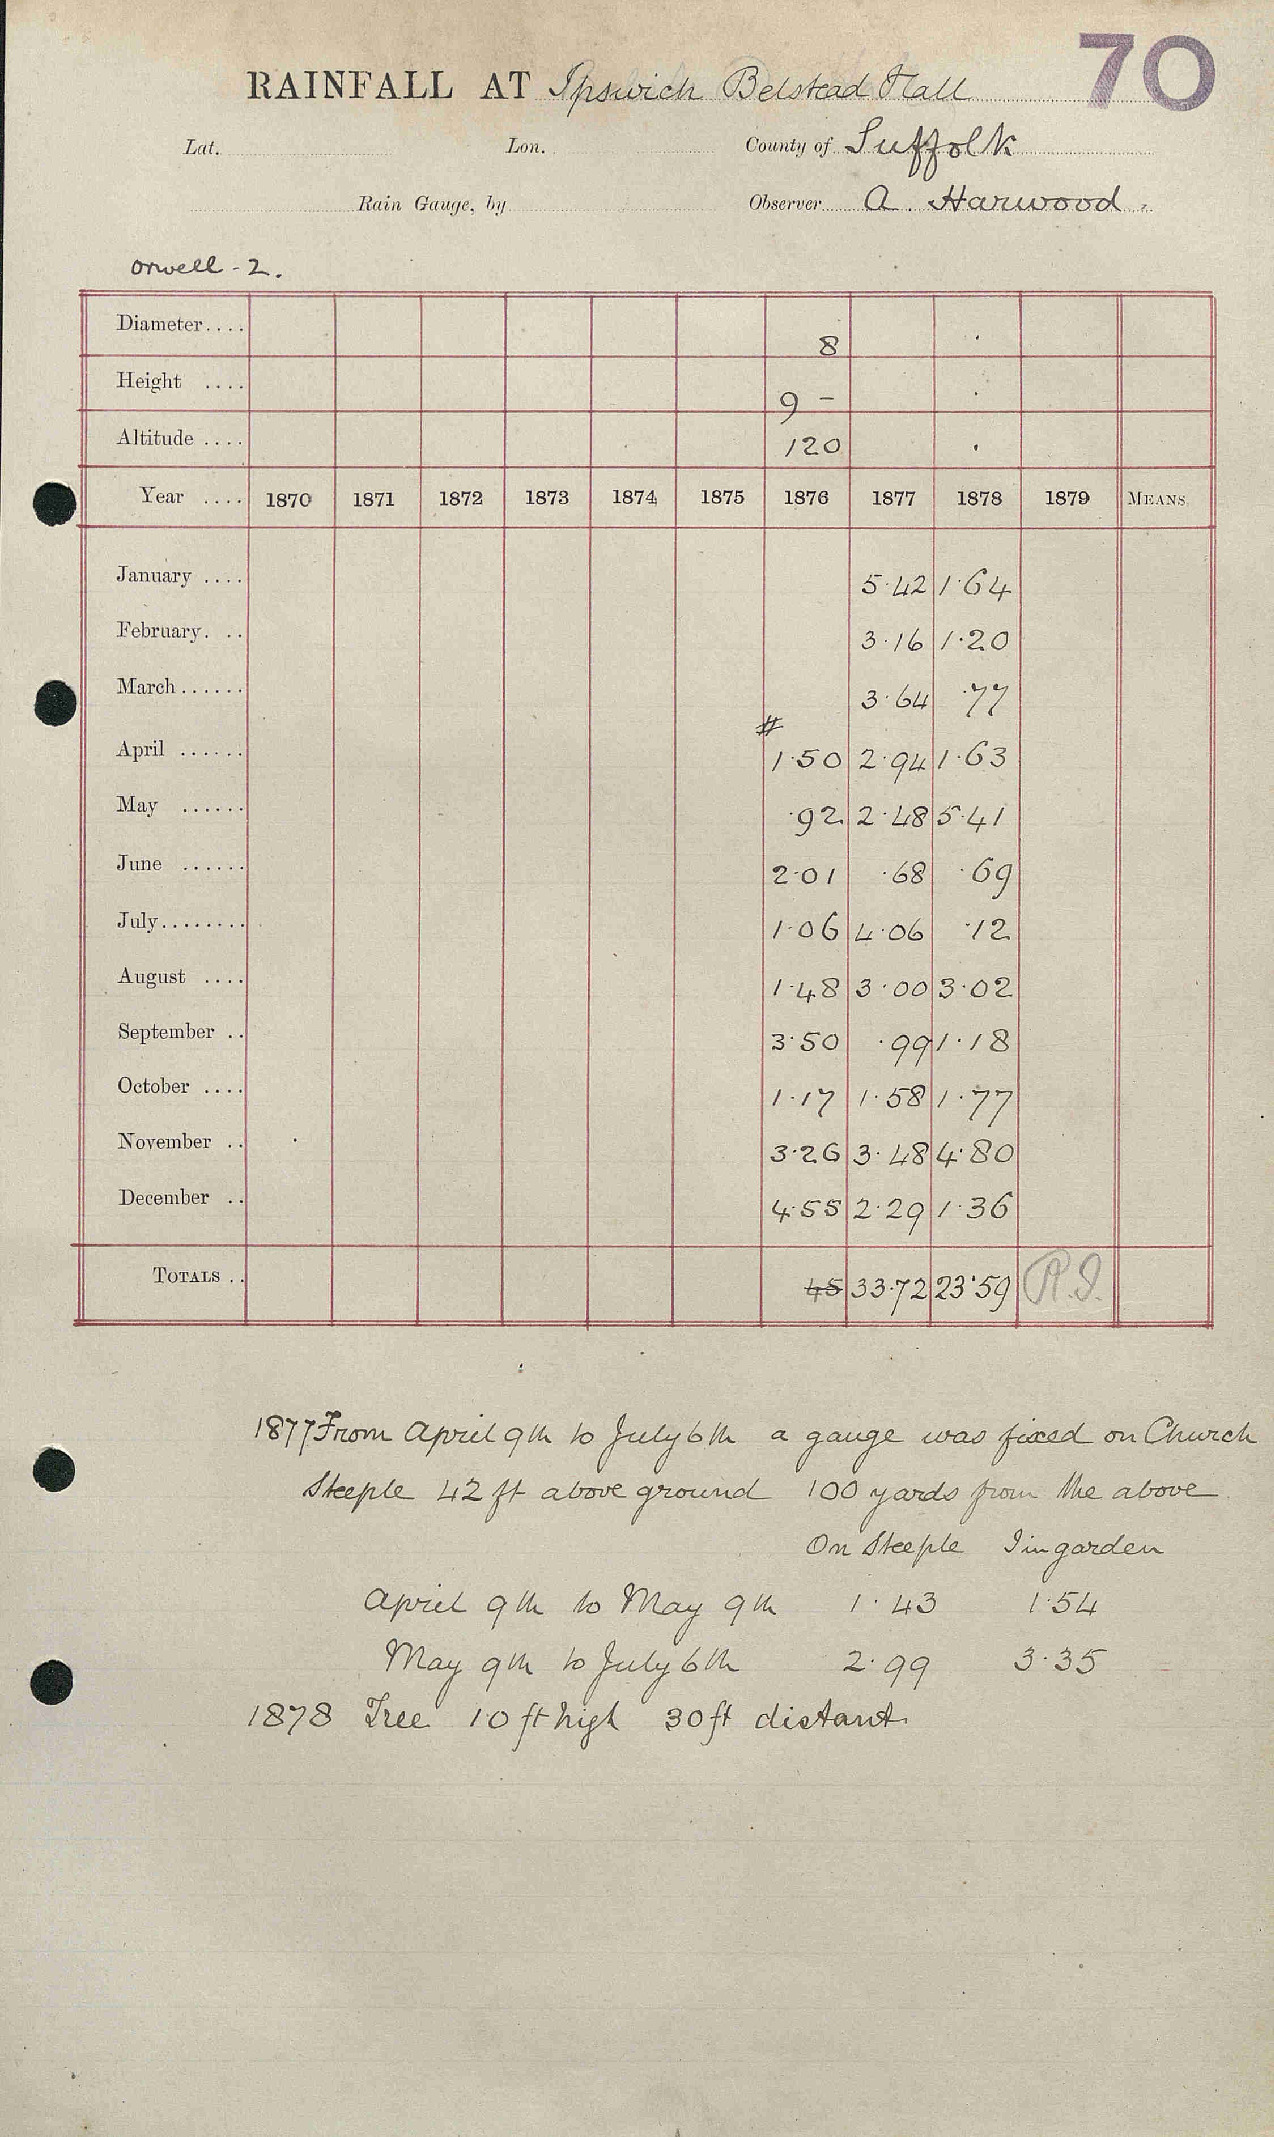 70
RAINFALL AT Ipswich Belstead Hall
Lat. Lon. County of Suffolk
Rain Gauge, by Observer A. Harwood.
Orwell - 2.
Diameter.... 8
Height .... 9 -
Altitude .... 120
Year .... 1870 1871 1872 1873 1874 1875 1876 1877 1878 1879 MEANS.
January .... 5.42 1.64
February. .. 3.16 1.20
March...... .. 3.64 .77
#
April ...... 1.50 2.94 1.63
May ...... .92 2.48 5.41
June ...... 2.01 .68 .69
July........ 1.06 4.06 .12
August .... 1.48 3.00 3.02
September .. 3.50 .99 1.18
October .... 1.17 1.58 1.77
November .. 3.26 3.48 4.80
December .. 4.55 2.29 1.36
TOTALS .. 45 33.72 23.59 R.I.
1877 From April 9th to July 6th a gauge was fixed on Church
Steeple 42 ft above ground 100 yards from the above
On Steeple I in garden
April 9th to May 9th 1.43 1.54
May 9th to July 6th 2.99 3.35
1878 Tree 10 ft high 30 ft distant.